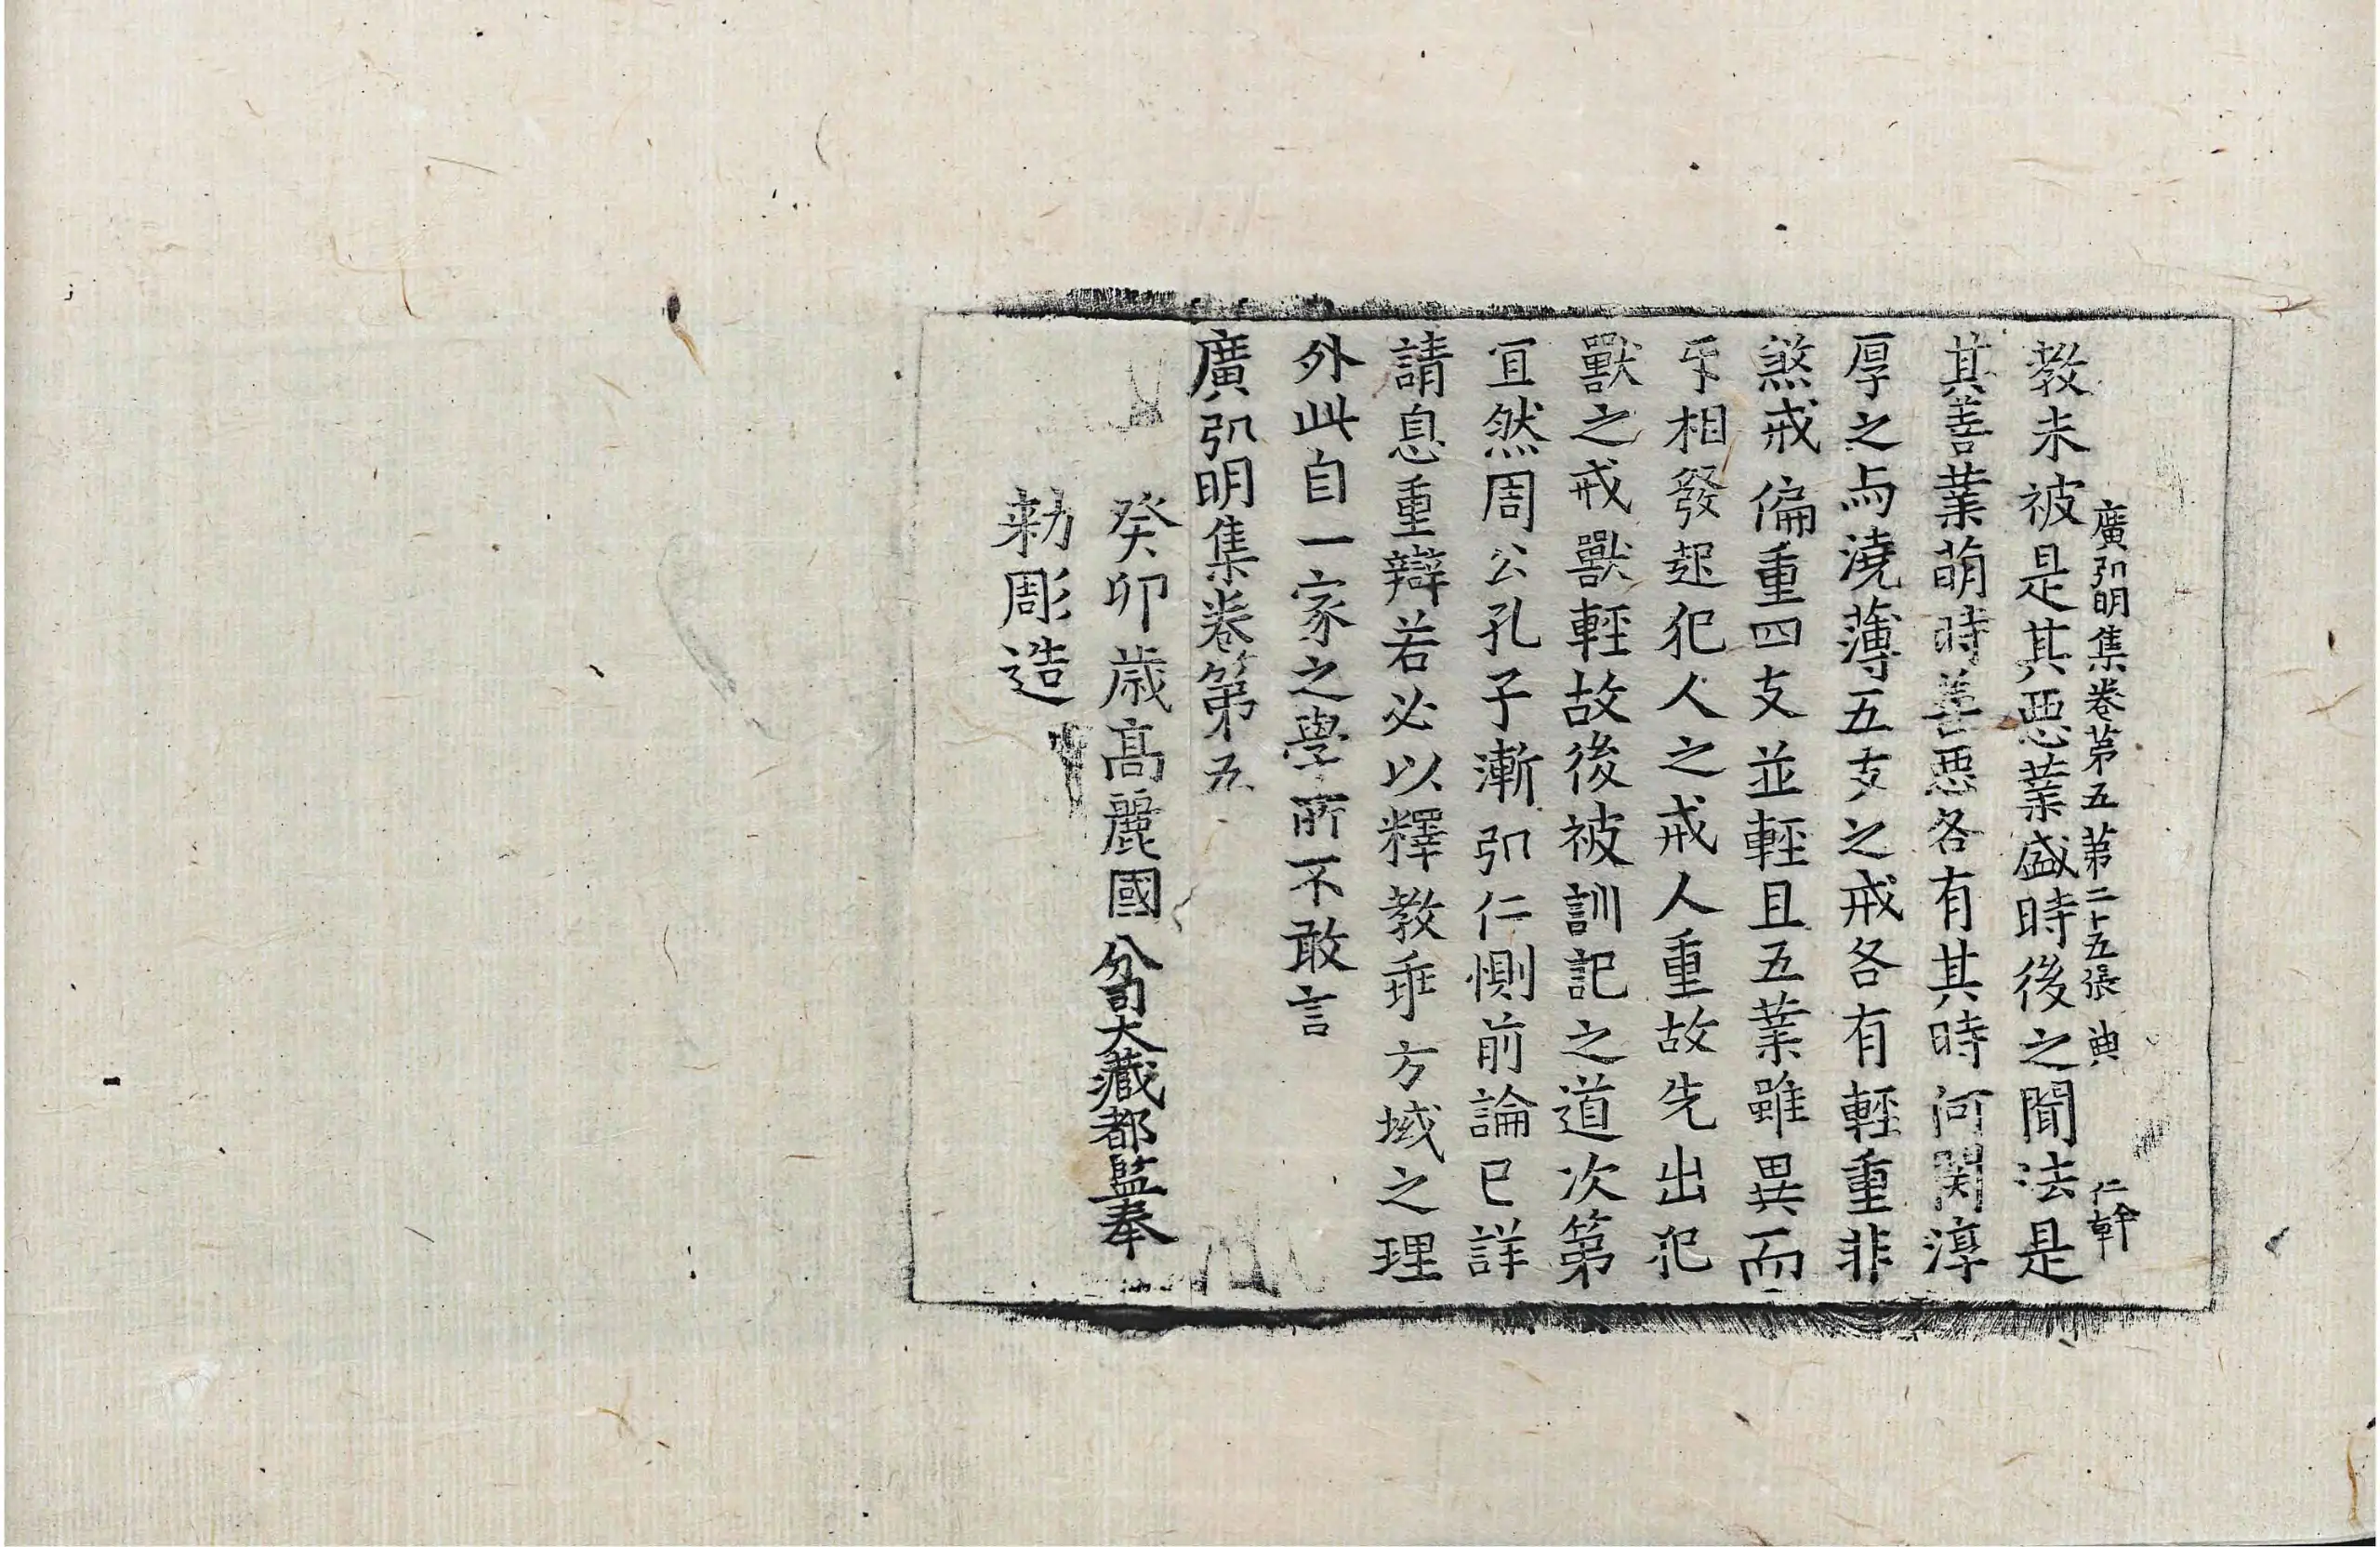 廣弘明集卷第五 第二十五張 典 仁幹
教未被是其惡業盛時後之聞法是
其善業萌時善惡各有其時何関淳
厚之与澆薄五支之戒各有輕重非
煞戒偏重四支並輕且五業雖異而
互相發起犯人之戒人重故先出犯
獸之戒獸輕故後被訓記之道次第
宜然周公孔子漸弘仁惻前論已詳
請息重辯若必以釋教乖方域之理
外此自一家之學所不敢言
廣弘明集卷第五
癸卯歲高麗國分司大藏都監奉
勅彫造